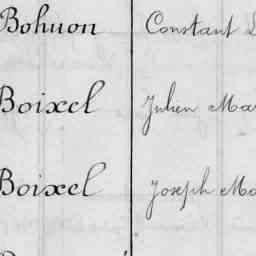 Bohuon Constant
Boixel Julien Ma
Boixel Joseph Ma